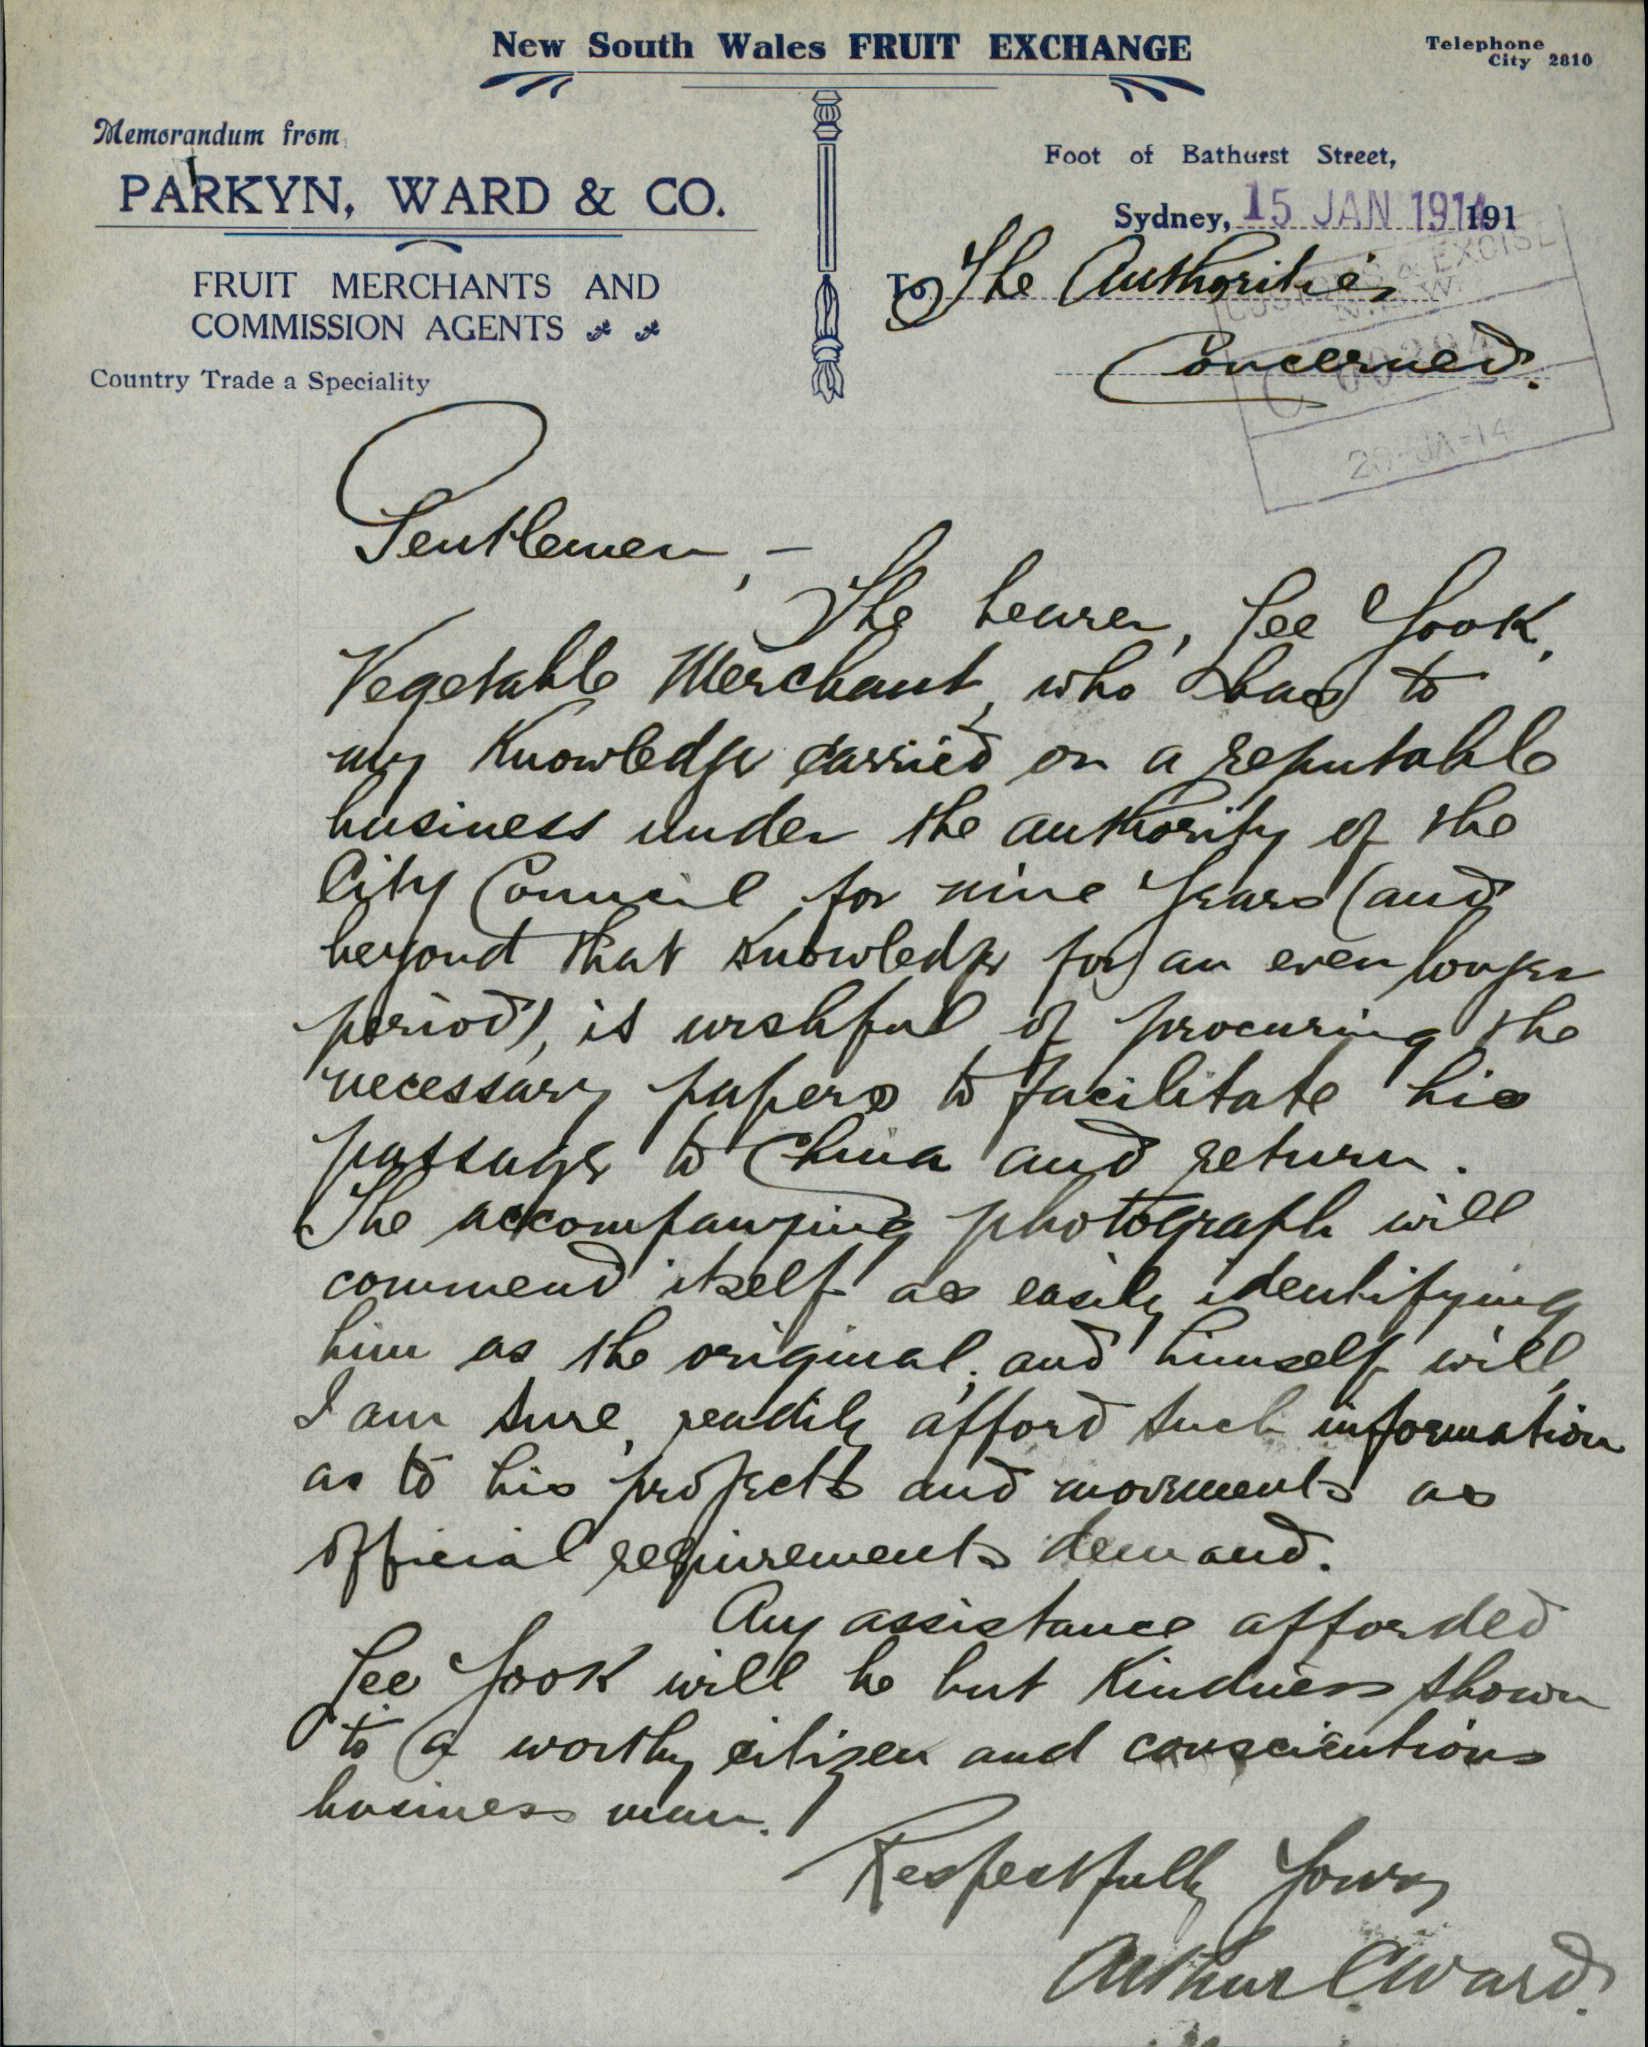 New South Wales FRUIT EXCHANGE
Telephone
City 2810
Memorandum from
PARKYN, WARD & CO.
FRUIT MERCHANTS AND
COMMISSION AGENTS
Country Trade a Speciality
Foot of Bathurst Street,
Sydney, 15 JAN 1914 191
To The Authorities
Concerned.
CUSTOMS & EXCISE
N.S.W.
C
20 JA-14
Gentlemen, -
The bearer, See Yook,
Vegetable Merchant, who has to
my knowledge carried on a reputable
business under the authority of the
City Council for nine years (and
beyond that knowledge for an even longer
period), is wishful of procuring the
necessary papers to facilitate his
passage to China and return.
The accompanying photograph will
commend itself as easily identifying
him as the original; and himself will,
I am sure, readily afford such information
as to his projects and movements as
official requirements demand.
Any assistance afforded
See Yook will be but kindness shown
to a worthy citizen and conscientious
business man.
Respectfully Yours,
Arthur C Ward.